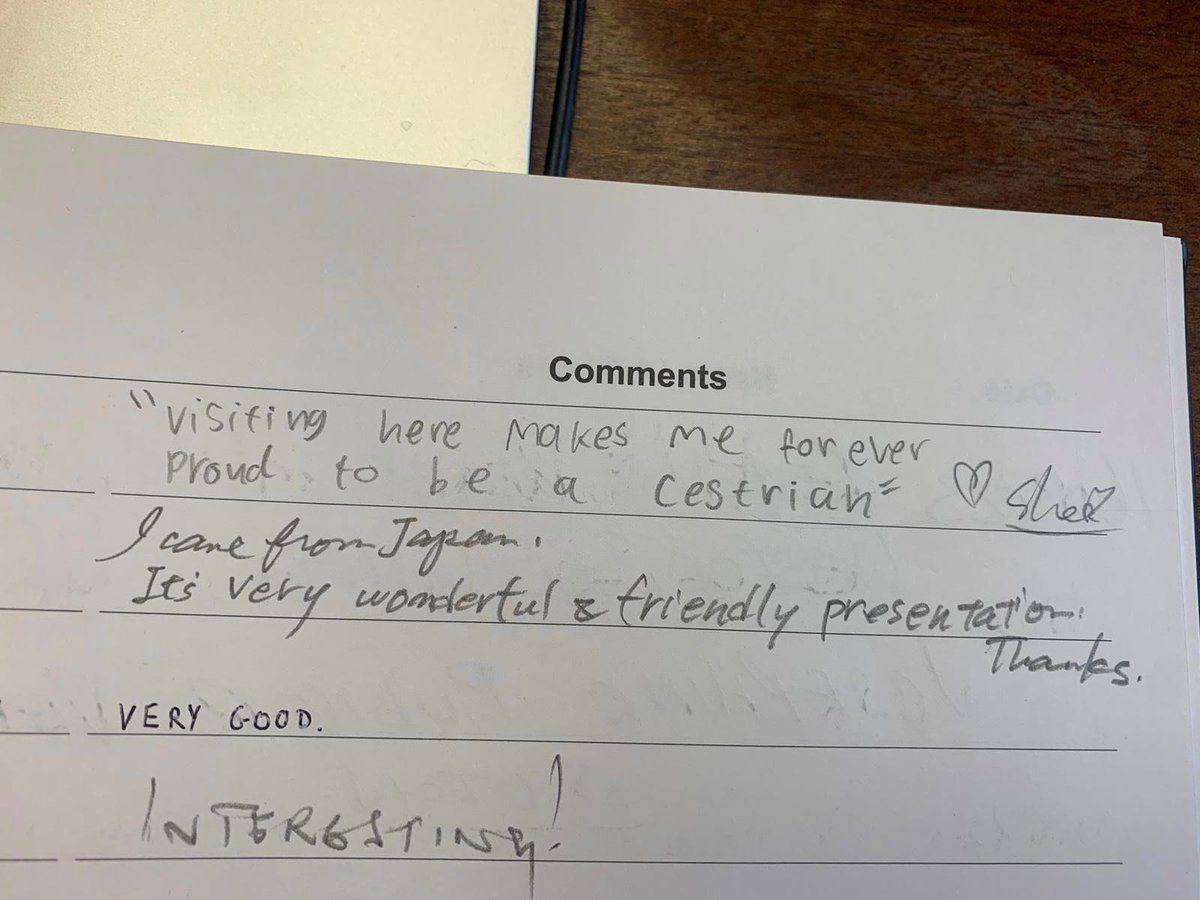 Comments
"Visiting here makes me forever
proud to be a Cestrian" ♡
I came from Japan.
It's very wonderful & friendly presentation.
Thanks.
VERY GOOD.
INTERESTING!